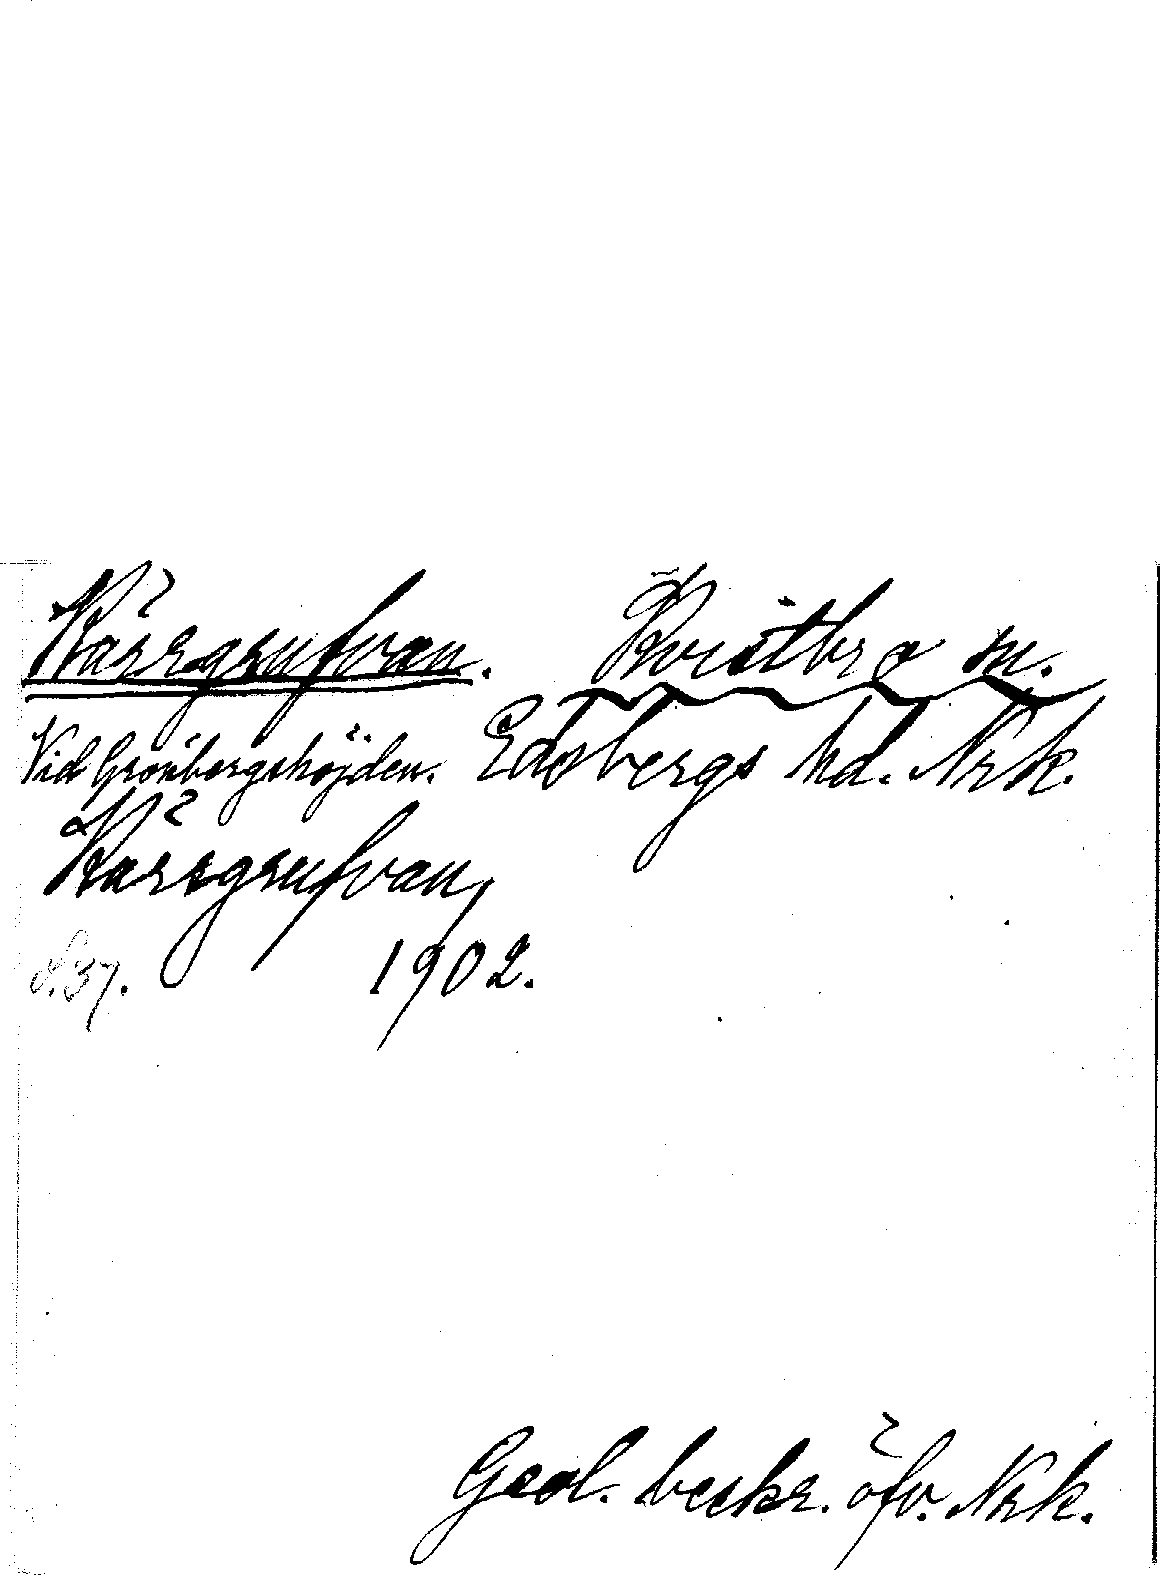 Kärrgrufvan. Kvistbro sn.
Vid Grönbergshöjden. Edsbergs hd. Nrk.
Kärrgrufvan,
s. 37. 1902.
Geol. beskr. öfv. Nrk.